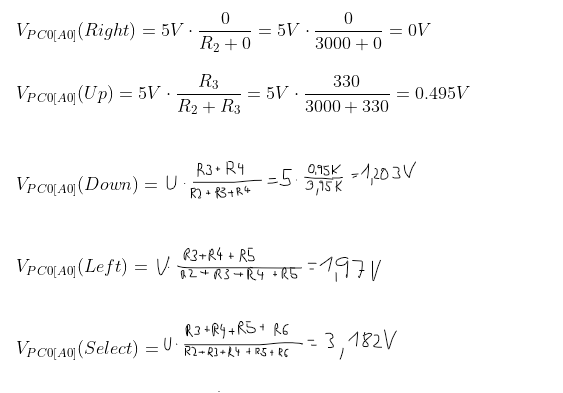 V_{PC0[A0]}(Right) = 5V · \frac{0}{R_2 + 0} = 5V · \frac{0}{3000 + 0} = 0V
V_{PC0[A0]}(Up) = 5V · \frac{R_3}{R_2 + R_3} = 5V · \frac{330}{3000 + 330} = 0.495V
V_{PC0[A0]}(Down) = U · \frac{R3 + R4}{R2 + R3 + R4} = 5 · \frac{0,95K}{3,95K} = 1,203V
V_{PC0[A0]}(Left) = U · \frac{R3 + R4 + R5}{R2 + R3 + R4 + R5} = 1,97V
V_{PC0[A0]}(Select) = U · \frac{R3 + R4 + R5 + R6}{R2 + R3 + R4 + R5 + R6} = 3,182V